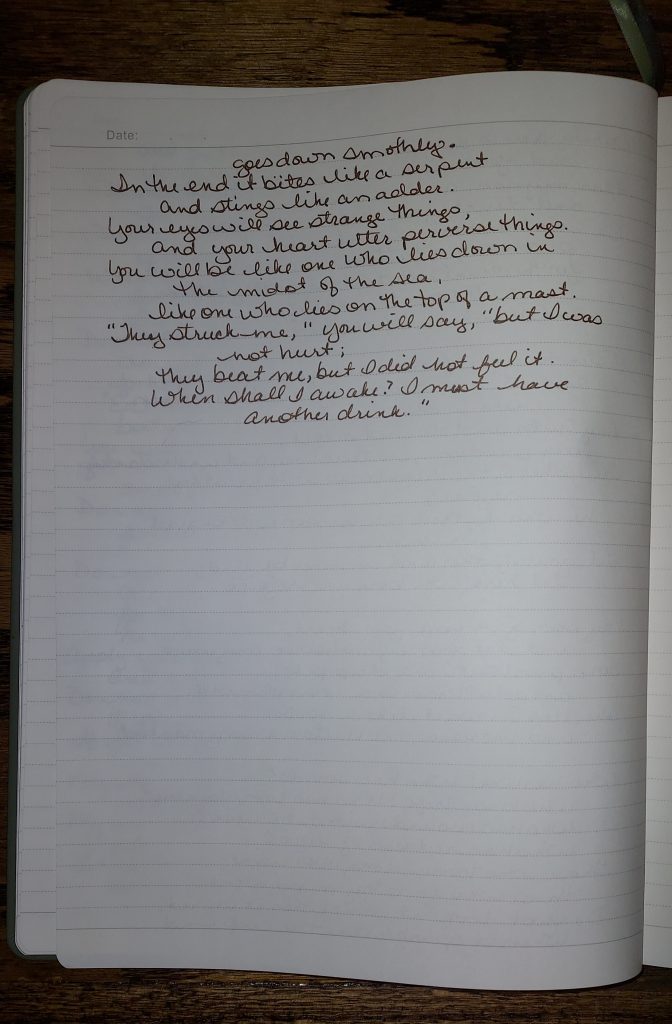 Date:
goes down smothly.
In the end it bites like a serpent
and stings like an adder.
Your eyes will see strange things,
and your heart utter perverse things.
You will be like one who lies down in
the midst of the sea,
like one who lies on the top of a mast.
"They struck me," you will say, "but I was
not hurt;
they beat me, but I did not feel it.
When shall I awake? I must have
another drink."